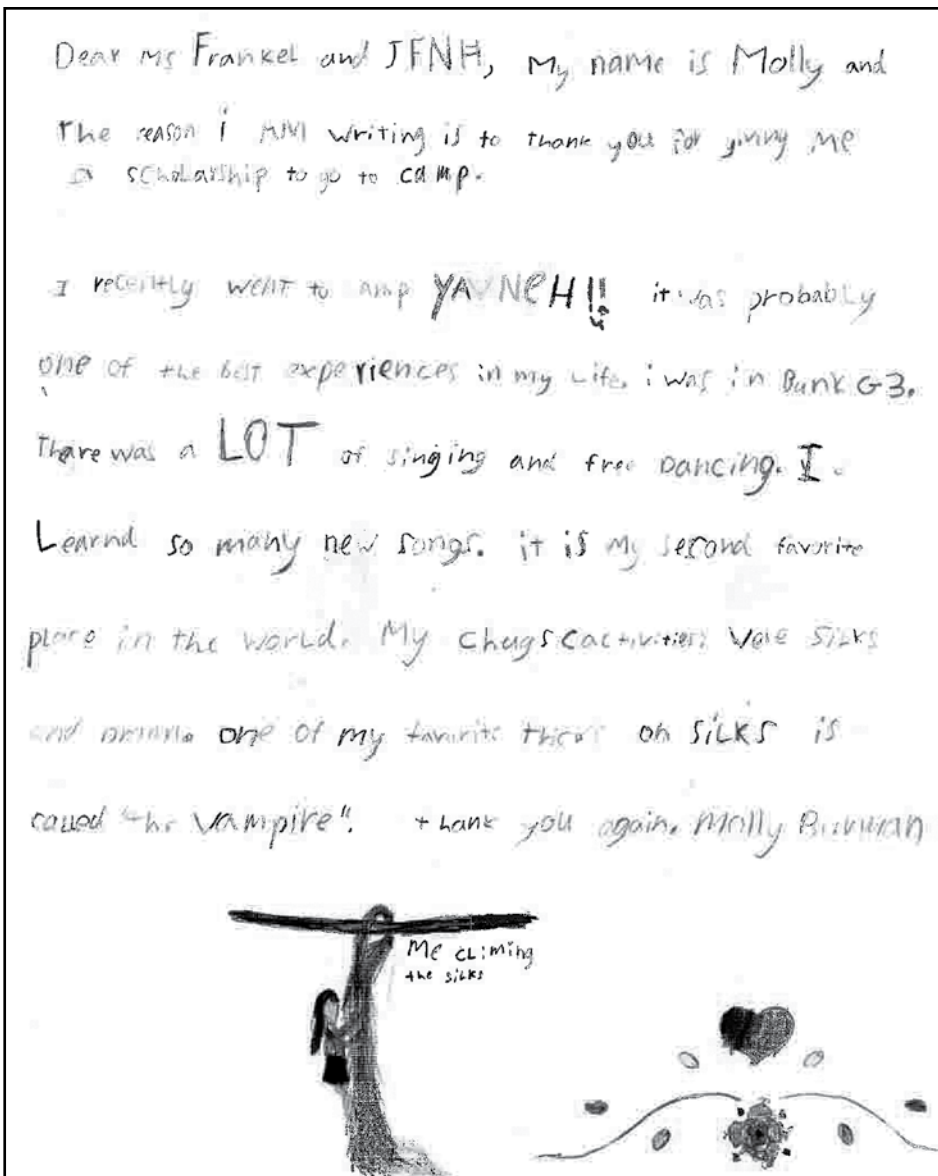 Dear Ms Frankel and JFNH, My name is Molly and
The reason i AM writing is to thank you for giving Me
a scholarship to go to camp.
I recently went to amp YAVNEH!! it was probably
one of the best experiences in my Life. i was in Bunk G3.
There was a LOT of singing and free Dancing. I.
Learnd so many new songs. it is My second favorite
place in the world. My Chugs (activities) were SiLKS
and one of my favorite on SiLKS is
called "the Vampire". thank you again. Molly
Me cLiming
the siLKs